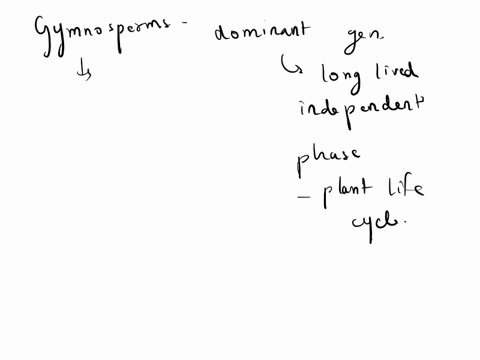 Gymnosperms - dominant gen.
long lived
independent
phase
- plant life
cycle.